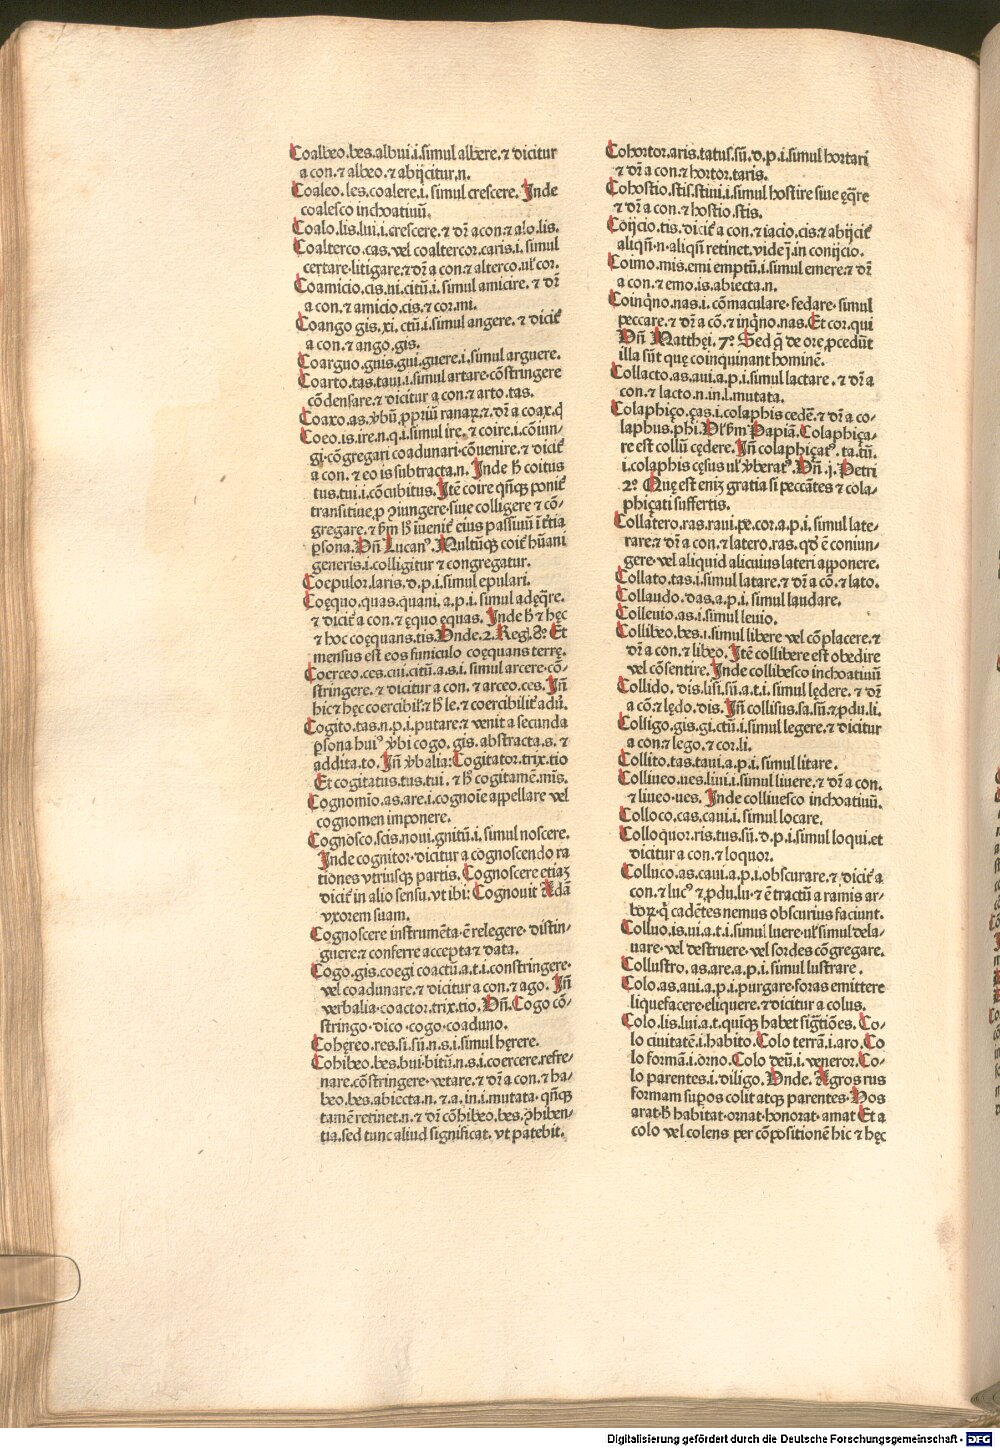 Coalbeo.bes.albui.i.simul albere.⁊ dicitur
a con.⁊ albeo.⁊ abijcitur.n.
Coaleo.les.coalere.i.simul crescere. Inde
coalesco inchoatiuū.
Coalo.lis.lui.i.crescere.⁊ dr̄ a con.⁊ alo.lis.
Coalterco.cas. vel coaltercor.caris.i. simul
certare.litigare.⁊ dr̄ a con.⁊ alterco.ul̕ cor.
Coamicio.cis.ni.citū.i.simul amicire. ⁊ dr̄
a con.⁊ amicio.cis.⁊ cor.mi.
Coango gis.xi.ctū.i simul angere. ⁊ dicit̄
a con.⁊ ango.gis.
Coarguo.guis.gui.guere.i.simul arguere.
Coarto.tas.taui.i.simul artare.cōstringere
cōdensare.⁊ dicitur a con.⁊ arto.tas.
Coaxo.as.v̄bū.ꝓpriū ranaꝝ.⁊.dr̄ a coax.ꝙ
Coeo.is.ire.n.q.i.simul ire. ⁊ coire.i.cōiun-
gi.cōgregari coadunari.cōuenire.⁊ dicit̄
a con.⁊ eo is subtracta.n. Inde h̄ coitus
tus.tui.i.cōcubitus. Itē coire qn̄qꝫ ponit̄
transitiue.ꝓ ꝯiungere.siue colligere ⁊ cō-
gregare.⁊ ẜm h̄ īuenit̄ eius passiuū ī t̄tia
ꝑsona. Vn̄ Lucan⁹. Multūqꝫ coit̄ hūani
generis.i.colligitur ⁊ congregatur.
Coepulor.laris.d.p.i.simul epulari.
Coęquo.quas.quaui.a.p.i. simul adęq̄re.
⁊ dicit̄ a con.⁊ ęquo ęquas. Inde h̄ ⁊ hęc
⁊ hoc coęquans.tis. Vnde.2. Reg̣.8°. Et
mensus est eos funiculo coęquans terrę.
Coerceo.ces.cui.citū.a.s.i. simul arcere.cō-
stringere.⁊ dicitur a con.⁊ arceo.ces. Iñ
hic ⁊ hęc coercibil̕.⁊ h̄ le.⁊ coercibilit̄ adū.
Cogito.tas.n.p.i.putare.⁊ venit a secunda
ꝑsona hui⁹ v̄bi cogo. gis.abstracta.s. ⁊
addita.to. Iñ v̄balia: Cogitator.trix.tio
Et cogitatus.tus.tui. ⁊ h̄ cogitamē.mīs.
Cognomio.as.are.i.cognoīe appellare vel
cognomen imponere.
Cognosco.scis.noui.gnitū.i. simul noscere.
Inde cognitor.dicitur a cognoscendo ra
tiones vtriusqꝫ partis. Cognoscere etiaꝫ
dicit̄ in alio sensu.vt ibi: Cognouit Adā
vxorem suam.
Cognoscere instrumēta.ē relegere. distin-
guere.⁊ conferre accepta ⁊ data.
Cogo.gis.coegi coactū.a.t.i.constringere.
vel coadunare.⁊ dicitur a con.⁊ ago. Iñ
verbalia.coactor.trix.tio. Vn̄. Cogo cō-
stringo.dico.cogo.coaduno.
Cohęreo.res.si.sū.n.s.i.simul hęrere.
Cohibeo.bes.bui.bitū.n.s.i.coercere.refre-
nare.cōstringere.vetare.⁊ dr̄ a con.⁊ ha-
beo.bes.abiecta.n. ⁊ a. in i.mutata. qn̄qꝫ
tamē retinet.n.⁊ dr̄ cōhibeo.bes.ꝓhiben-
tia.sed tunc aliud significat. vt patebit.
Cohortor.aris.tatus.sū.d.p.i.simul hortari
⁊ dr̄ a con.⁊ hortor.taris.
Cohostio.stis.stiui.i.simul hostire siue ęq̄re
⁊ dr̄ a con.⁊ hostio.stis.
Coijcio.tis.dicit̄ a con.⁊ iacio.cis.⁊ abijcit̄
aliqn̄.n.aliqn̄ retinet.vide j̄.in conijcio.
Coimo.mis.emi emptū.i simul emere.⁊ dr̄
a con.⁊ emo.is.abiecta.n.
Coinq̇no.nas.i.cōmaculare.fedare.simul
peccare.⁊ dr̄ a cō.⁊ inq̇no.nas. Et cor.qui
Vn̄ Matthęi.7°. Sed q̄ de ore ꝓcedūt
illa sūt quę coinquinant hominē.
Collacto.as.aui.a.p.i.simul lactare.⁊ dr̄ a
con.⁊ lacto.n.in.l.mutata.
Colaphiço.ças.i.colaphis cedē.⁊ dr̄ a co-
laphus.phi. Vl̕ ẜm Papiā. Colaphiça-
re est collū cędere. Iñ colaphiçat⁹.ta.tū.
i.colaphis cęsus ul̕ v̄berat⁹. Vn̄.j. Petri
2°. Quę est enīꝫ gratia si peccātes ⁊ cola-
phiçati suffertis.
Collatero.ras.raui.ꝑe.cor.a.p.i.simul late-
rare.⁊ dr̄ a con.⁊ latero.ras.qd̕ ē coniun-
gere.vel aliquid alicuius lateri apponere.
Collato.tas.i.simul latare.⁊ dr̄ a cō.⁊ lato.
Collaudo.das.a.p.i.simul laudare.
Colleuio.as.i.simul leuio.
Collibeo.bes.i.simul libere vel cōplacere.⁊
dr̄ a con.⁊ libeo. Itē collibere est obedire
vel cōsentire. Inde collibesco inchoatiuū
Collido.dis.lisi.sū.a.t.i.simul lędere. ⁊ dr̄
a cō.⁊ lędo.dis. Iñ collisus.sa.sū.⁊ ꝓdu.li.
Colligo.gis.gi.ctū.i.simul legere.⁊ dicitur
a con.⁊ lego.⁊ cor.li.
Collito.tas.taui.a.p.i.simul litare.
Colliueo.ues.liui.i.simul liuere.⁊ dr̄ a con.
⁊ liueo.ues. Inde colliuesco inchoatiuū.
Colloco.cas.caui.i.simul locare.
Colloquor.ris.tus.sū.d.p.i.simul loqui.et
dicitur a con.⁊ loquor.
Colluco.as.caui.a.p.i.obscurare.⁊ dicit̄ a
con.⁊ luc⁹ ⁊ ꝓdu.lu.⁊ ē tractū a ramis ar-
boꝝ.q̇ cadētes nemus obscurius faciunt.
Colluo.is.ui.a.t.i.simul luere.ul̕ simul dela-
uare. vel destruere.vel sordes cōgregare.
Collustro.as.are.a.p.i.simul lustrare.
Colo.as.aui.a.p.i.purgare.foras emittere
liquefacere.eliquere.⁊ dicitur a colus.
Colo.lis.lui.a.t.quiqꝫ habet sig̅tiões. Co-
lo ciuitatē.i.habito. Colo terrā.i.aro. Co
lo formā.i.orno. Colo deū.i.veneror. Co-
lo parentes.i.diligo. Vnde. Agros rus
formam suꝑos colit atqꝫ parentes. Hos
arat.h̄ habitat.ornat.honorat.amat Et a
colo vel colens per cōpositionē hic ⁊ hęc
Digitalisierung gefördert durch die Deutsche Forschungsgemeinschaft - DFG